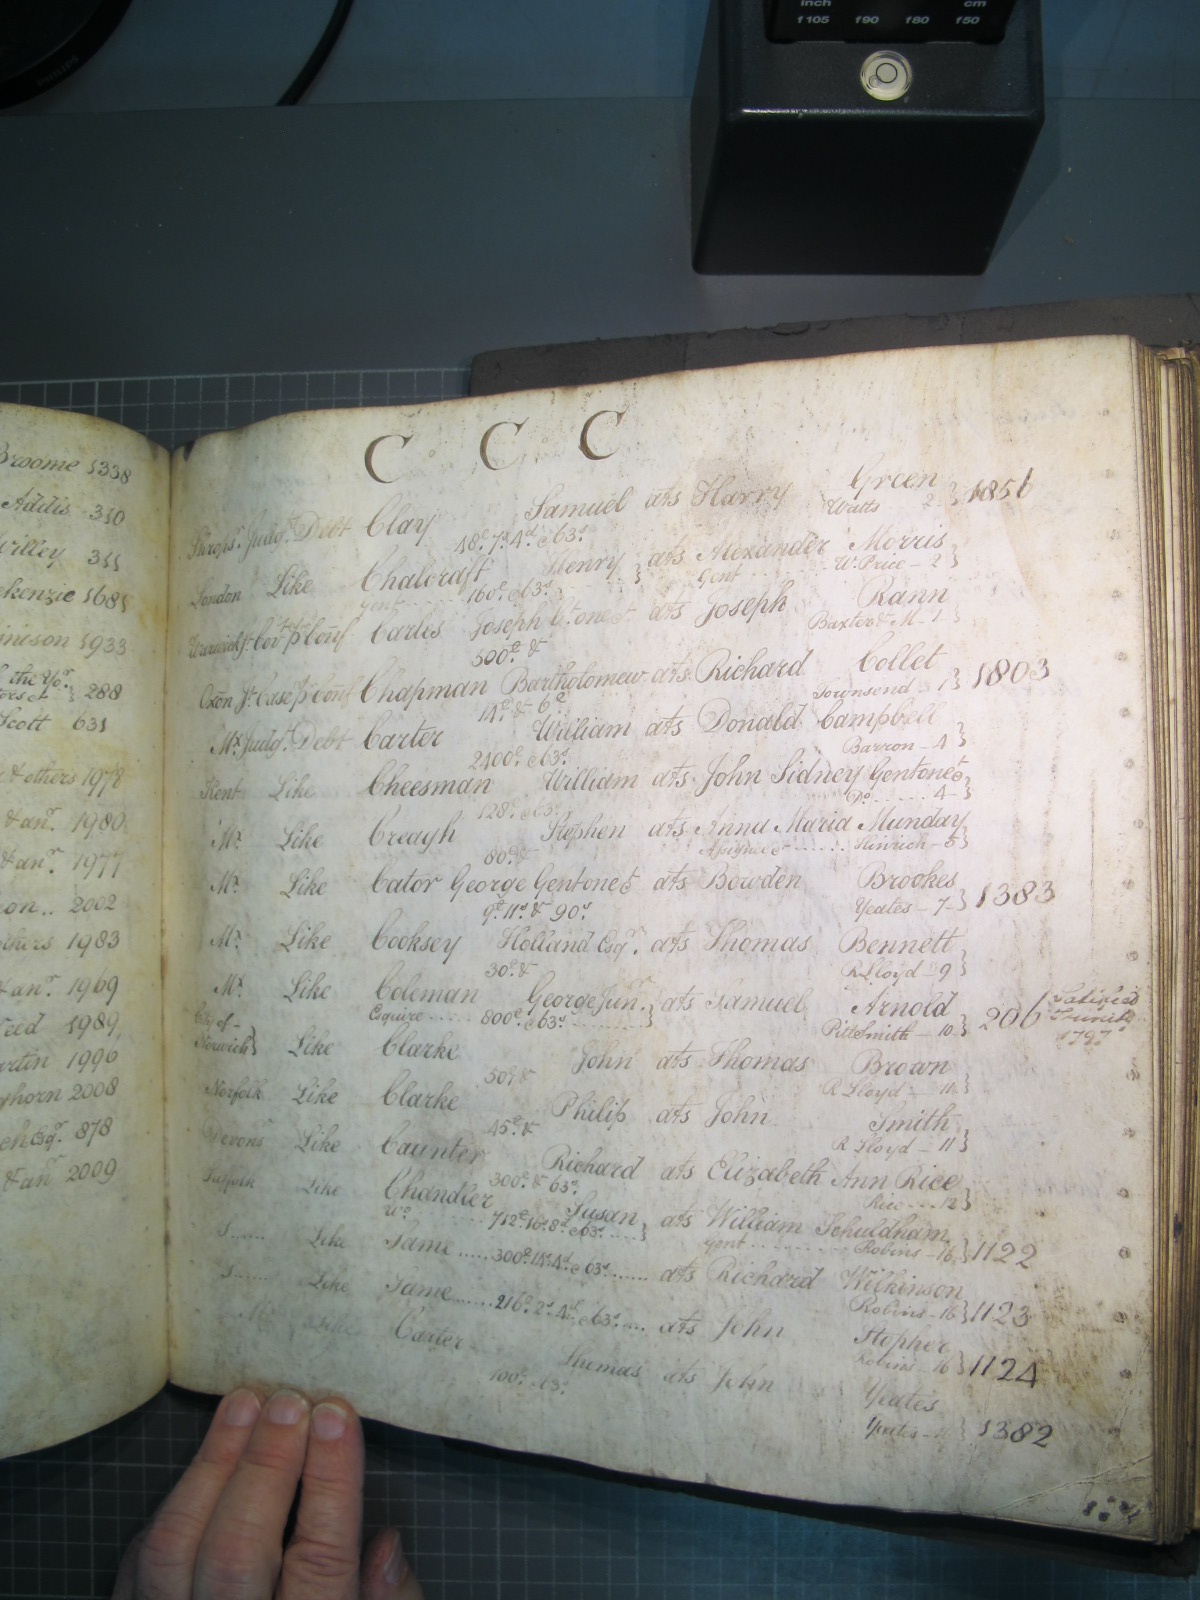 inch cm
f105 f90 f80 f50
PHILIPS
Broome 1338
Addis 310
Willey 311
kenzie 1681
inson 1933
of the Yor. 288
Scott 631
& others 1978
& anr. 1980
& anr. 1977
on.. 2002
thers 1983
& anr. 1969
eed 1989
artin 1996
horn 2008
ch Esqr. 878
& anr 2009
C C C
Shrops. Judgt. Debt Clay Samuel ats Harry Green
48£.7s.4d. & 63s. Watts 2 } 1851
London Like Chalcraft Henry } ats Alexander Morris
Gent 160£. & 63s. Gent W. Price – 2 }
Joseph ats Joseph Rann
500£. & Baxter & M – 1 }
Oxon Jt. Case p Conf Chapman Bartholomew ats Richard Collet
14£. & 6d Townsend – 1 } 1803
Mx. Judgt. Debt Carter William ats Donald Campbell
2400£. & 63s. Barron – 4 }
Kent Like Cheesman William ats John Sidney Gent one &c
128£. & 63s. Do. 4 }
Mx. Like Creagh Stephen ats Anna Maria Munday
80£. & Assignee Hinrich – 5 }
Mx. Like Cator George Gent one &c ats Bowden Brookes
9£. 11s. & 90s. Yeates – 7 } 1383
Mx. Like Cooksey Holland Esqr. ats Thomas Bennett
30£. & R Lloyd – 9 }
Mx. Like Coleman George Junr. } ats Samuel Arnold
Esquire 800£. & 63s. Pitt Smith – 10 } 206 Satisfied
1797
City of –
Norwich } Like Clarke John ats Thomas Brown
50£. & R Lloyd – 11 }
Norfolk Like Clarke Philip ats John Smith
45£. & R Lloyd – 11 }
Devons Like Caunter Richard ats Elizabeth Ann Rice
300£. & 63s. Rice – 12 }
Suffolk Like Chandler Susan } ats William Schuldham
Wo. 712£.16s.8d. & 63s. gent Robins – 16 } 1122
S...... Like Same ...... 300£.14s.4d. & 63s. ...... ats Richard Wilkinson
Robins – 16 } 1123
S...... Like Same ...... 216£. 2s. 4d. & 63s. .... ats John Stopher
Robins – 16 } 1124
Mx. Like Carter Thomas ats John Yeates
100£. 63s. Yeates } 1382